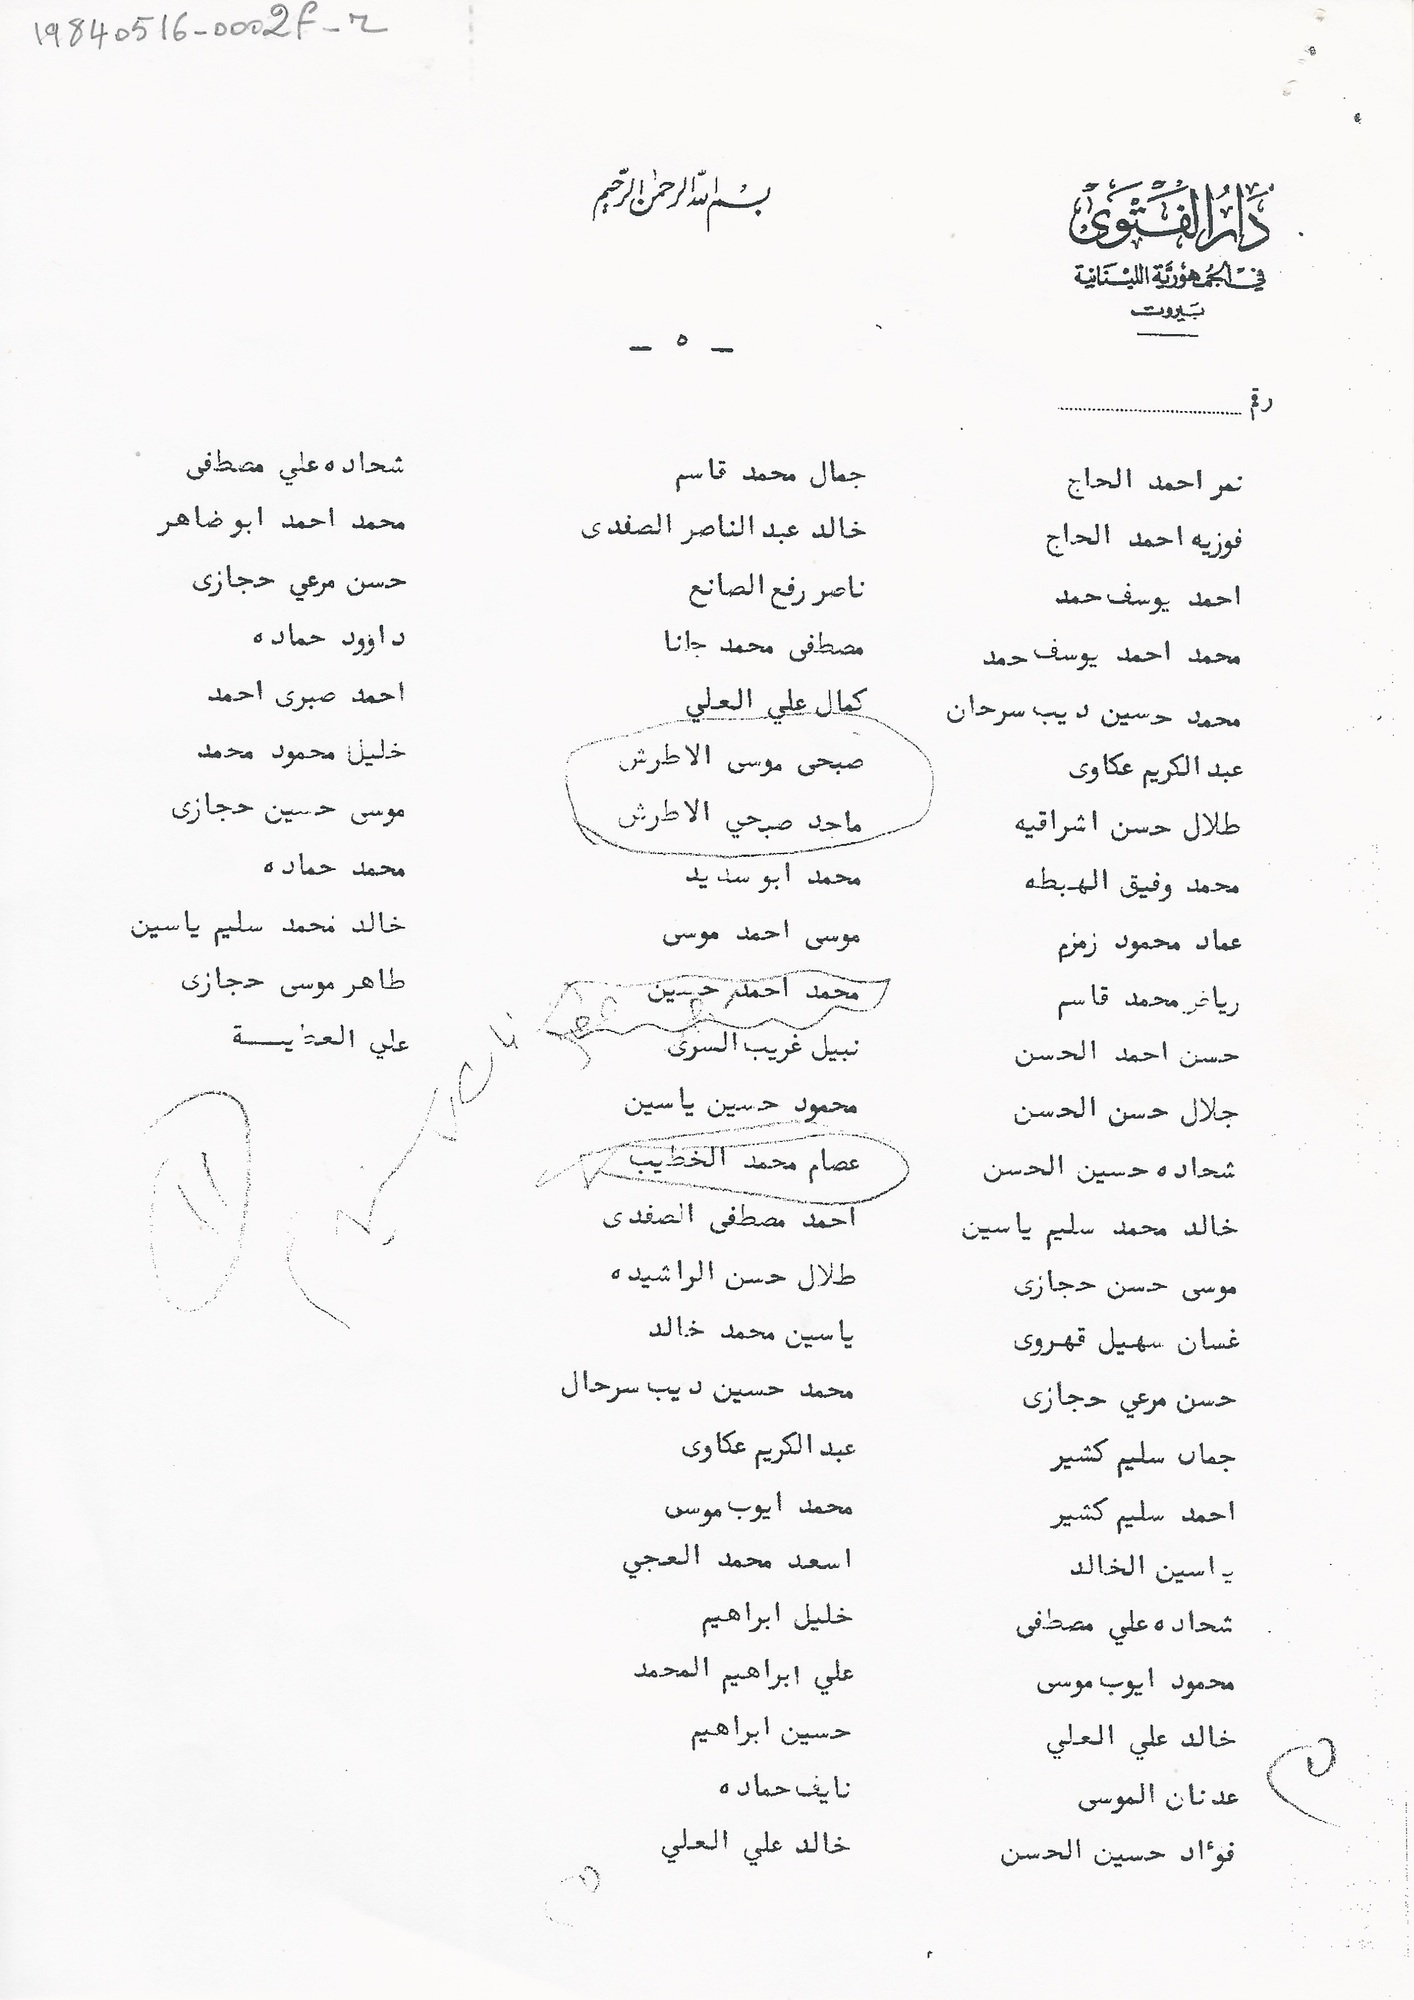 19840516-0002f-r
بسم الله الرحمن الرحيم
دار الفتوى
في الجمهورية اللبنانية
بيروت
- ٥ -
رقم
نمر احمد الحاج
فوزيه احمد الحاج
احمد يوسف حمد
محمد احمد يوسف حمد
محمد حسين ديب سرحان
عبد الكريم عكاوى
طلال حسن اشراقيه
محمد وفيق الهبطه
عماد محمود زمزم
رياض محمد قاسم
حسن احمد الحسن
جلال حسن الحسن
شحاده حسين الحسن
خالد محمد سليم ياسين
موسى حسن حجازى
غسان سهيل قهروى
حسن مرعي حجازى
جمال سليم كشير
احمد سليم كشير
ياسين الخالد
شحاده علي مصطفى
محمود ايوب موسى
خالد علي العلي
عدنان الموسى
فوءاد حسين الحسن
جمال محمد قاسم
خالد عبد الناصر الصفدى
ناصر رفع الصانع
مصطفى محمد جانا
كمال علي العلي
صبحى موسى الاطرش
ماجد صبحي الاطرش
محمد ابو سديد
موسى احمد موسى
محمد احمد حسين
نبيل غريب السرى
محمود حسين ياسين
عصام محمد الخطيب
احمد مصطفى الصفدى
طلال حسن الراشيده
ياسين محمد خالد
محمد حسين ديب سرحال
عبد الكريم عكاوى
محمد ايوب موسى
اسعد محمد العجي
خليل ابراهيم
علي ابراهيم المحمد
حسين ابراهيم
نايف حماده
خالد علي العلي
شحاده علي مصطفى
محمد احمد ابو ضاهر
حسن مرعي حجازى
داوود حماده
احمد صبرى احمد
خليل محمود محمد
موسى حسين حجازى
محمد حماده
خالد محمد سليم ياسين
طاهر موسى حجازى
علي العطيـــة
١١